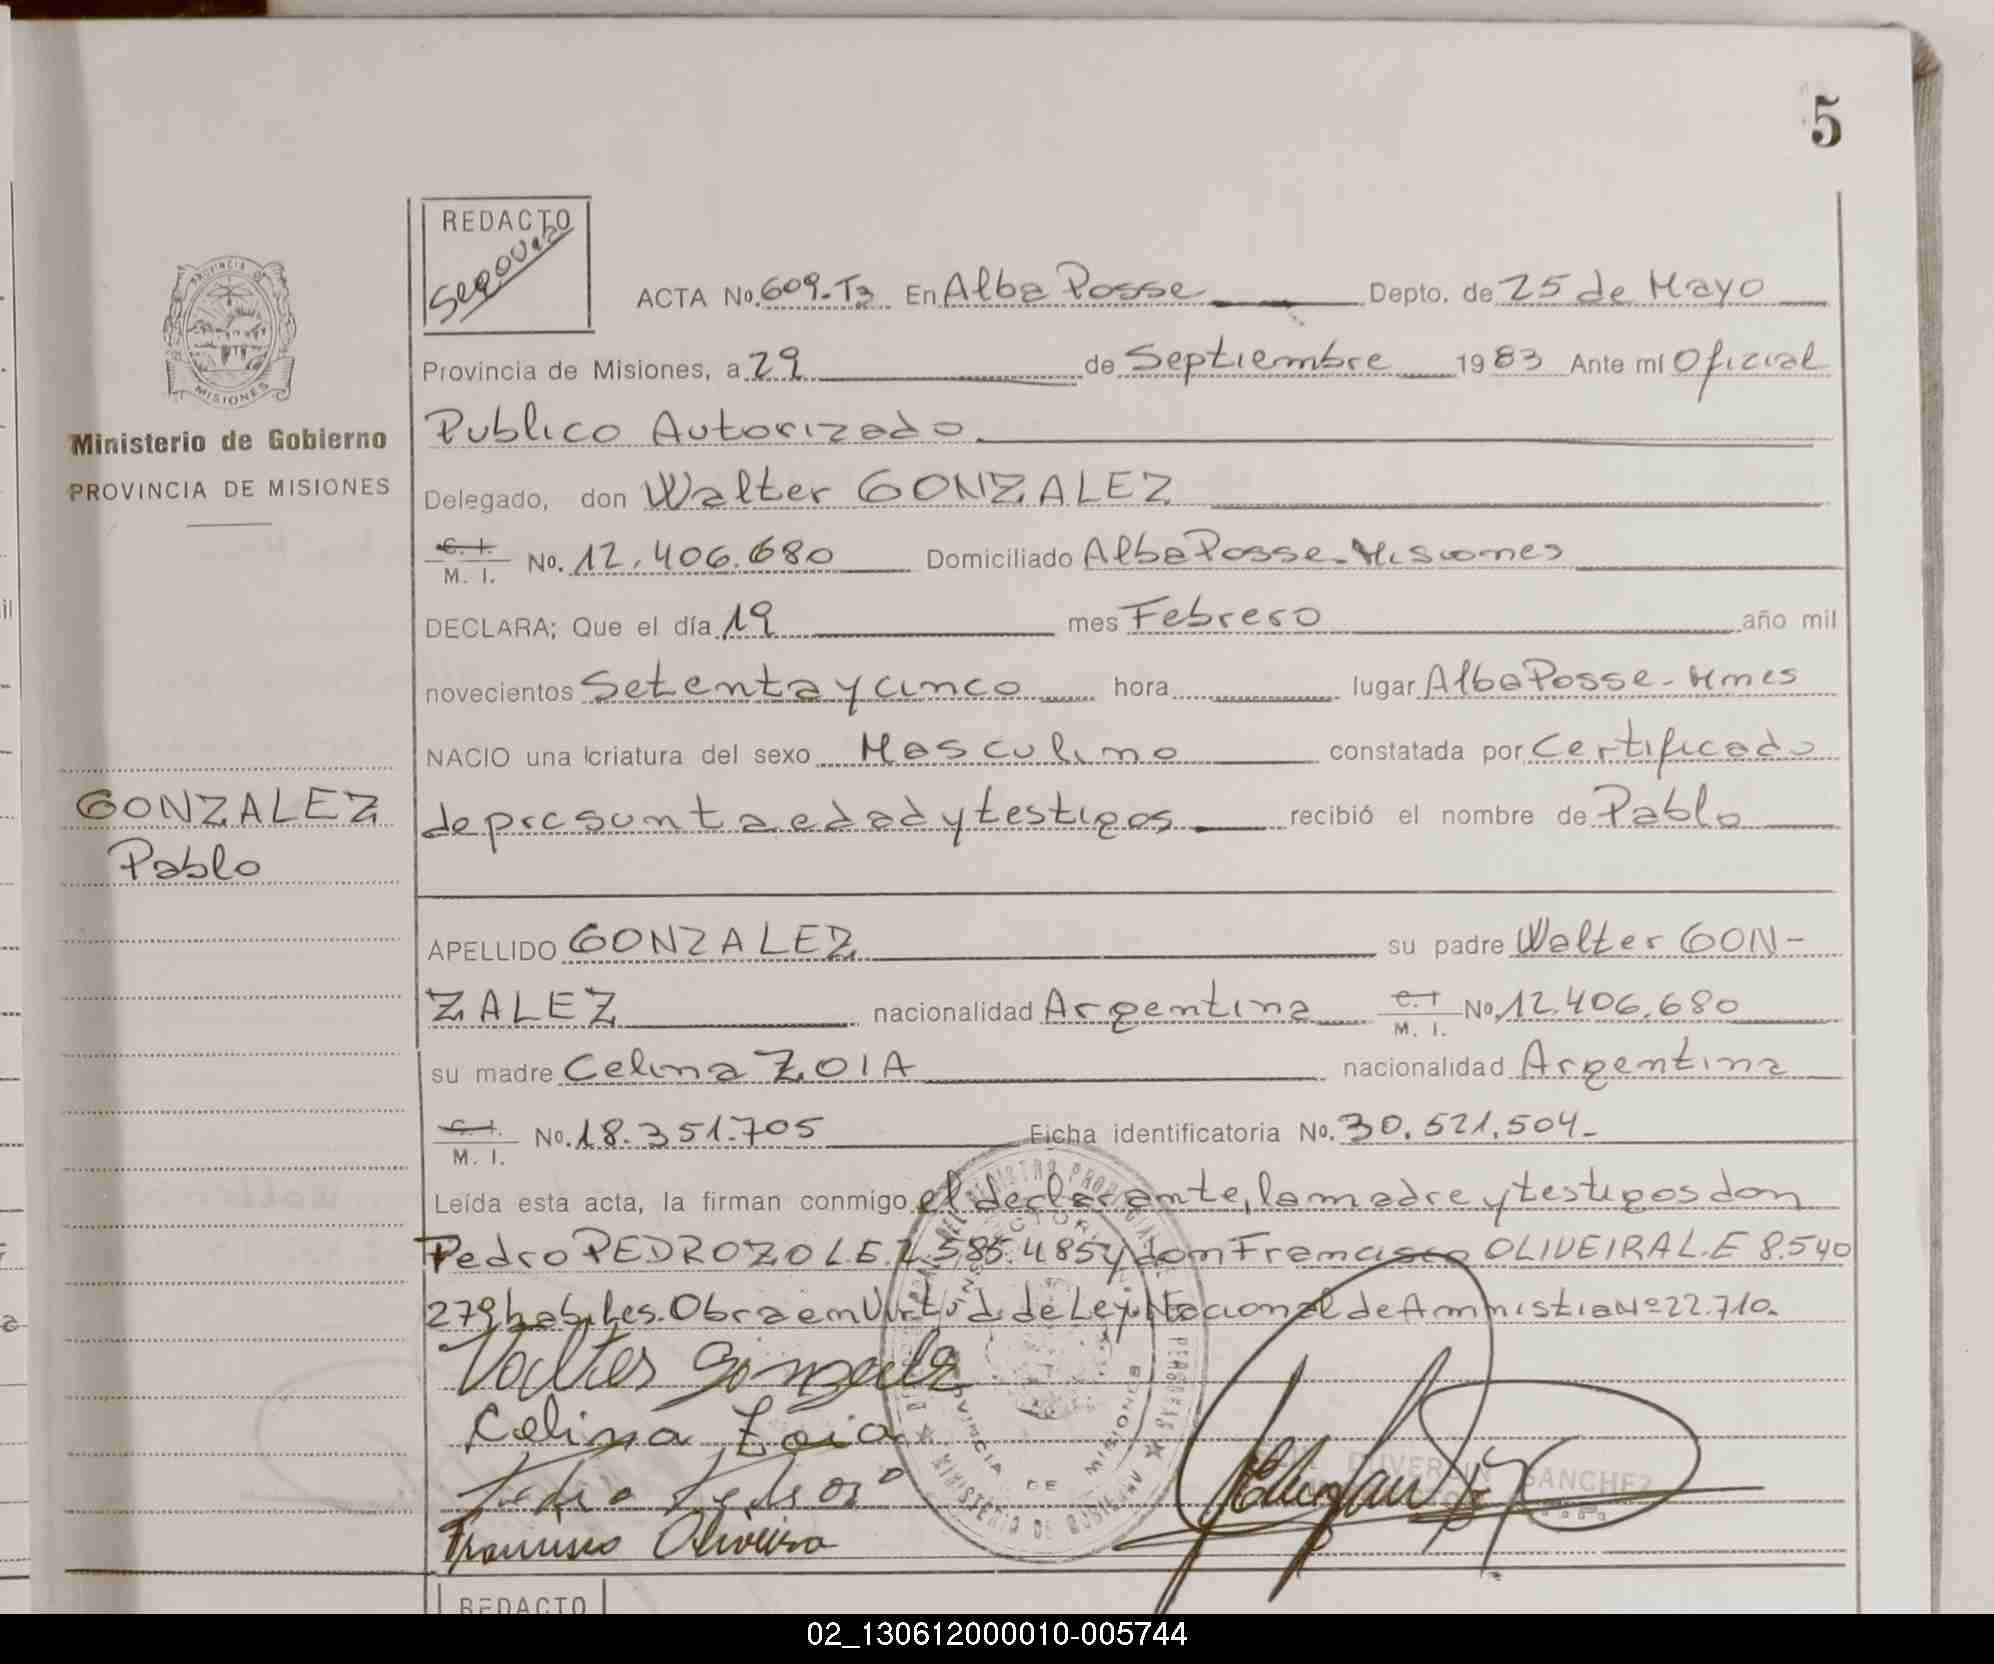 5
REDACTO
Segovia
ACTA No. 609-T3 En Alba Posse Depto. de 25 de Mayo
Provincia de Misiones, a 29 de Septiembre 1983 Ante mi Oficial
Publico Autorizado
Delegado, don Walter GONZALEZ
C. I.
M. I. No. 12.406.680 Domiciliado Alba Posse - Misiones
DECLARA; Que el día 19 mes Febrero año mil
novecientos Setenta y cinco hora lugar Alba Posse - Mnes
NACIO una criatura del sexo Masculino constatada por Certificado
de presunta edad y testigos recibió el nombre de Pablo
APELLIDO GONZALEZ su padre Walter GON-
ZALEZ nacionalidad Argentina C. I. M. I. No. 12.406.680
su madre Celina ZOIA nacionalidad Argentina
C. I.
M. I. No. 18.351.705 Ficha identificatoria No. 30.521.504-
Leída esta acta, la firman conmigo el declarante, la madre y testigos don
Pedro PEDROZO L.E. 7.585.485 y don Francisco OLIVEIRA L.E 8.540
279 habiles. Obra en Virtud de Ley Nacional de Amnistia Nº 22.710.
Walter Gonzalez
Celina Zoia
Pedro Pedroso
Francisco Oliveira
SANCHEZ
PROVINCIA DE MISIONES
PROVINCIA DE
MISIONES
Ministerio de Gobierno
PROVINCIA DE MISIONES
GONZALEZ
Pablo
REDACTO
02_130612000010-005744